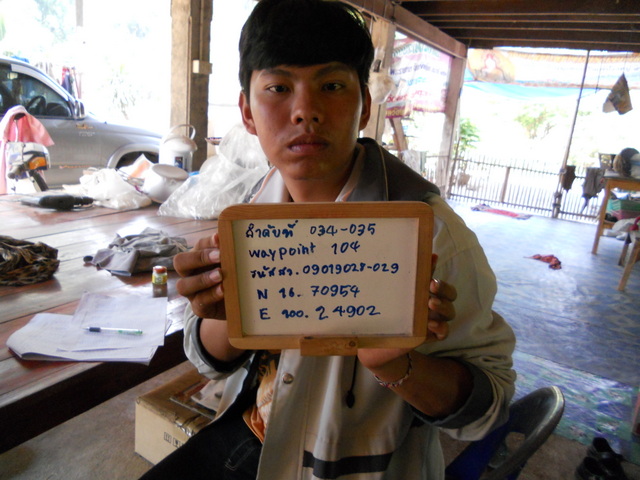 ลำดับที่ 034-035
waypoint 104
รหัสสว. 09019028-029
N 16. 70954
E 100. 24902